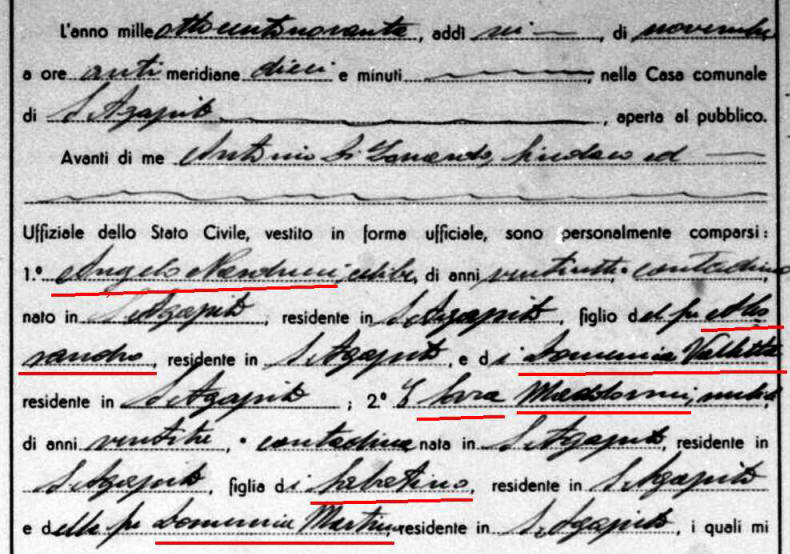 L'anno mille ottocentonovanta, addì sei, di novembre
a ore anti meridiane dieci e minuti, nella Casa comunale
di S. Agapito, aperta al pubblico.
Avanti di me Antonio Di Leonardo, Sindaco ed
Uffiziale dello Stato Civile, vestito in forma ufficiale, sono personalmente comparsi:
1.º Angelo Narducci, celibe, di anni ventisette, contadino
nato in S. Agapito, residente in S. Agapito, figlio del fu Ales
sandro, residente in S. Agapito, e di Domenica
residente in S. Agapito; 2º nubile
di anni ventitre, contadina nata in S. Agapito, residente in
S. Agapito, figlia di Sabatino, residente in S. Agapito
e della fu Domenica residente in S. Agapito, i quali mi